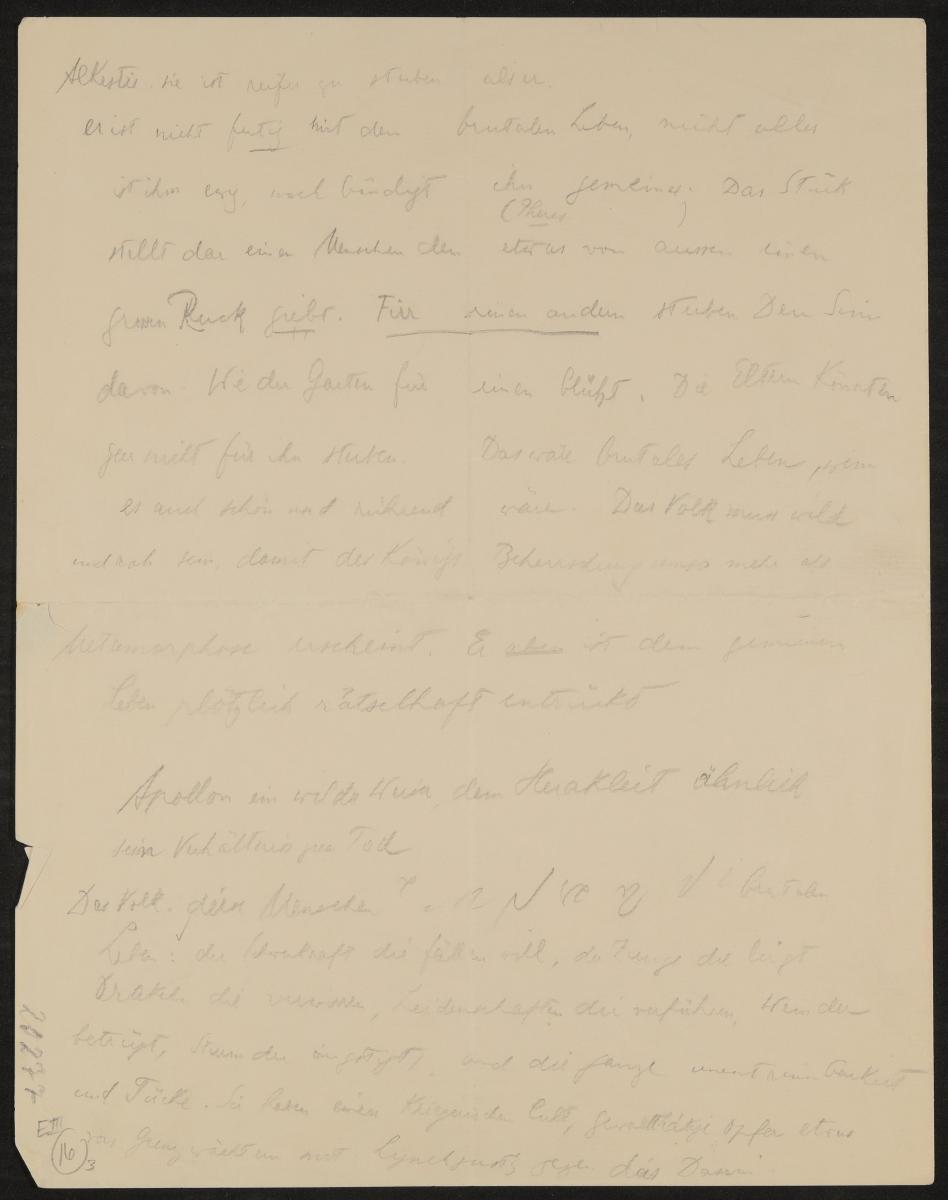 Alkestis. sie ist reifer zu sterben als er.
er ist nicht fertig mit dem brutalen Leben, nicht alles
ist ihm ewig, noch bändigt ihn gemeines. Das Stück
(Pheres )
stellt dar einen Menschen dem etwas von aussen einen
grossen Ruck giebt. Für einen andern sterben Den Sinn
davon. Wie der Garten für einen blüht. Die Eltern könnten
gar nicht für ihn sterben. Das wäre brutales Leben, wenn
es auch schön und rührend wäre. Das Volk muss wild
und roh sein, damit des Königs Beherrschung umso mehr als
Metamorphose erscheint. Er aber ist dem gemeinen
Leben plötzlich rätselhaft entrückt
Apollon ein wildes Wesen, dem Herakleit ähnlich
sein Verhältnis zum Tod
Das Volk. diese Menschen brutalen
Leben: der die fällen will, die Zunge die lügt
Orakel die , Leidenschaften die verführen,
betrügt, und die ganze
und Tücke. Sie haben einen Cult, gewaltthätige Opfer etwas
von mit Lynchjustiz gegen das Dasein.
20277
E III
16
3